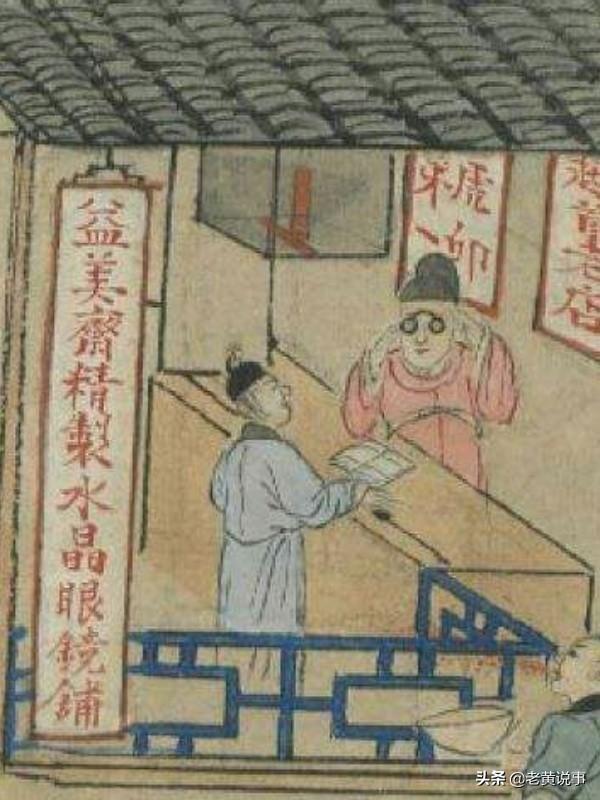 益美齋精製水晶眼鏡鋪
老店
头条 @老黄说事